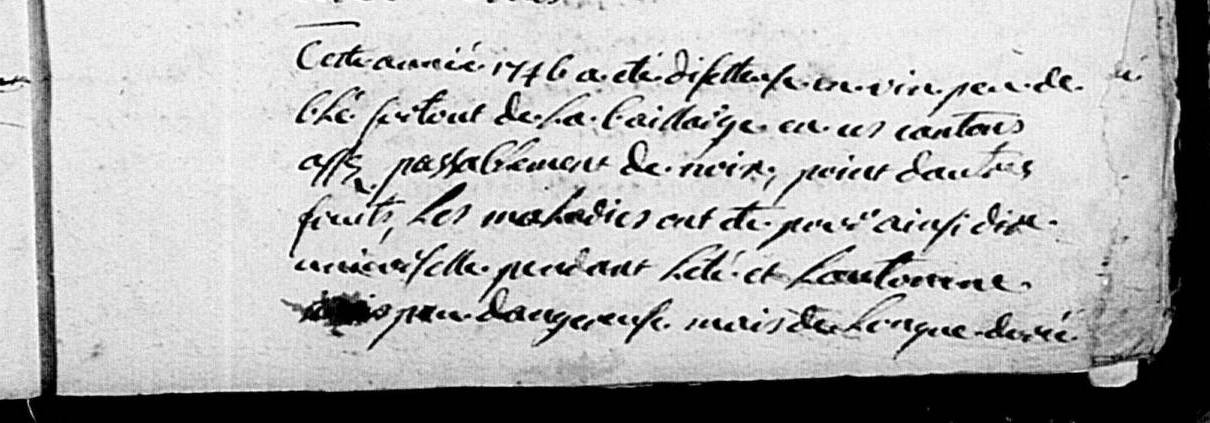 Cette année 1746 a eté disetteuse en vin peu de
blé surtout de la baillarge en ces cantons
assez passablement de noix, point dautres
fruits, Les maladies ont eté pour ainsi dire
universelle pendant leté et Lautonne
peu dangereuse mais de longue durée